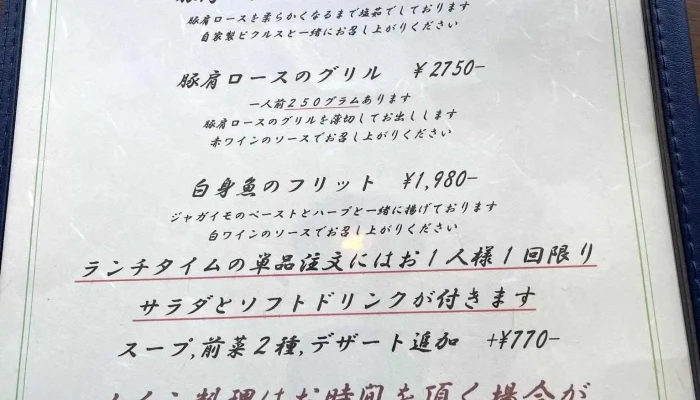 豚肩ロースを柔らかくなるまで塩茹でしております
自家製ピクルスと一緒にお召し上がりください
豚肩ロースのグリル ¥2750-
一人前250グラムあります
豚肩ロースのグリルを薄切してお出しします
赤ワインのソースでお召し上がりください
白身魚のフリット ¥1,980-
ジャガイモのペーストとハーブと一緒に揚げております
白ワインのソースでお召し上がりください
ランチタイムの単品注文にはお1人様1回限り
サラダとソフトドリンクが付きます
スープ,前菜2種,デザート追加 +¥770-
メイン料理はお時間を頂く場合が